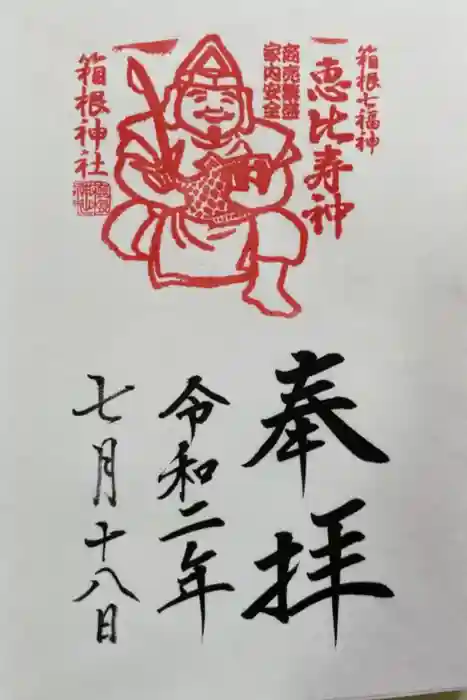 箱根七福神
恵比寿神
商売繁盛
家内安全
箱根神社
奉拝
令和二年
七月十八日